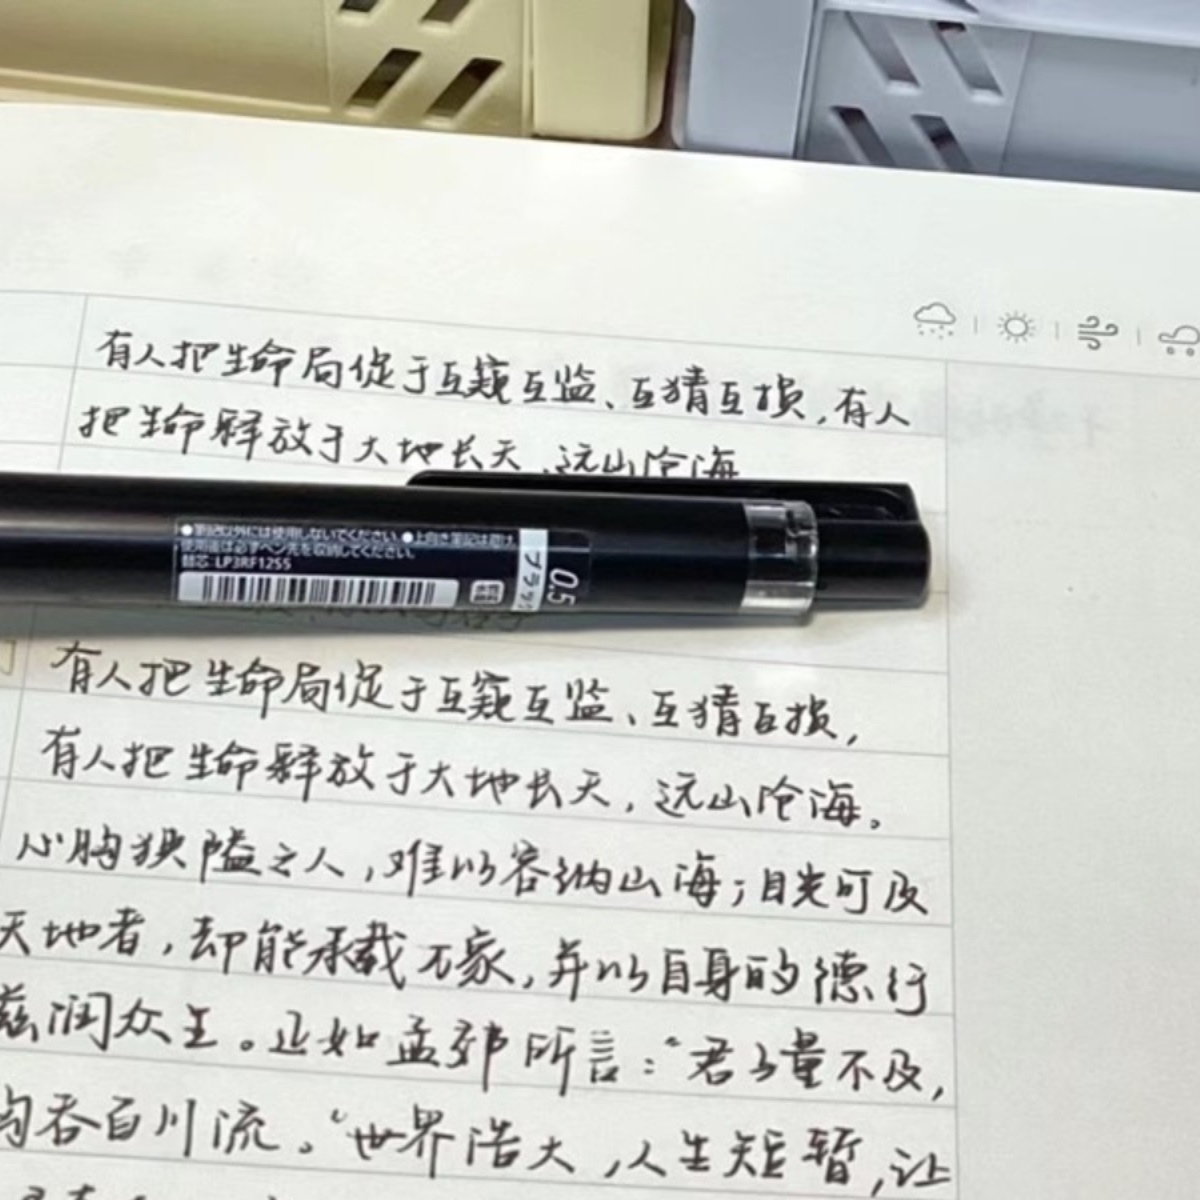 有人把生命局促于互窥互监、互猜互损,有人
把生命释放于大地长天、远山沧海
●筆記以外には使用しないでください。●上向き筆記は避け、
使用後は必ずペン先を収納してください。
替芯:LP3RF12S5
ブラック
0.5
有人把生命局促于互窥互监、互猜互损,
有人把生命释放于大地长天,远山沧海。
心胸狭隘之人,难以容纳山海;目光可及
天地者,却能承载万家,并以自身的德行
滋润众生。正如孟郊所言:“君子量不及,
胸吞百川流。“世界浩大,人生短暂,让